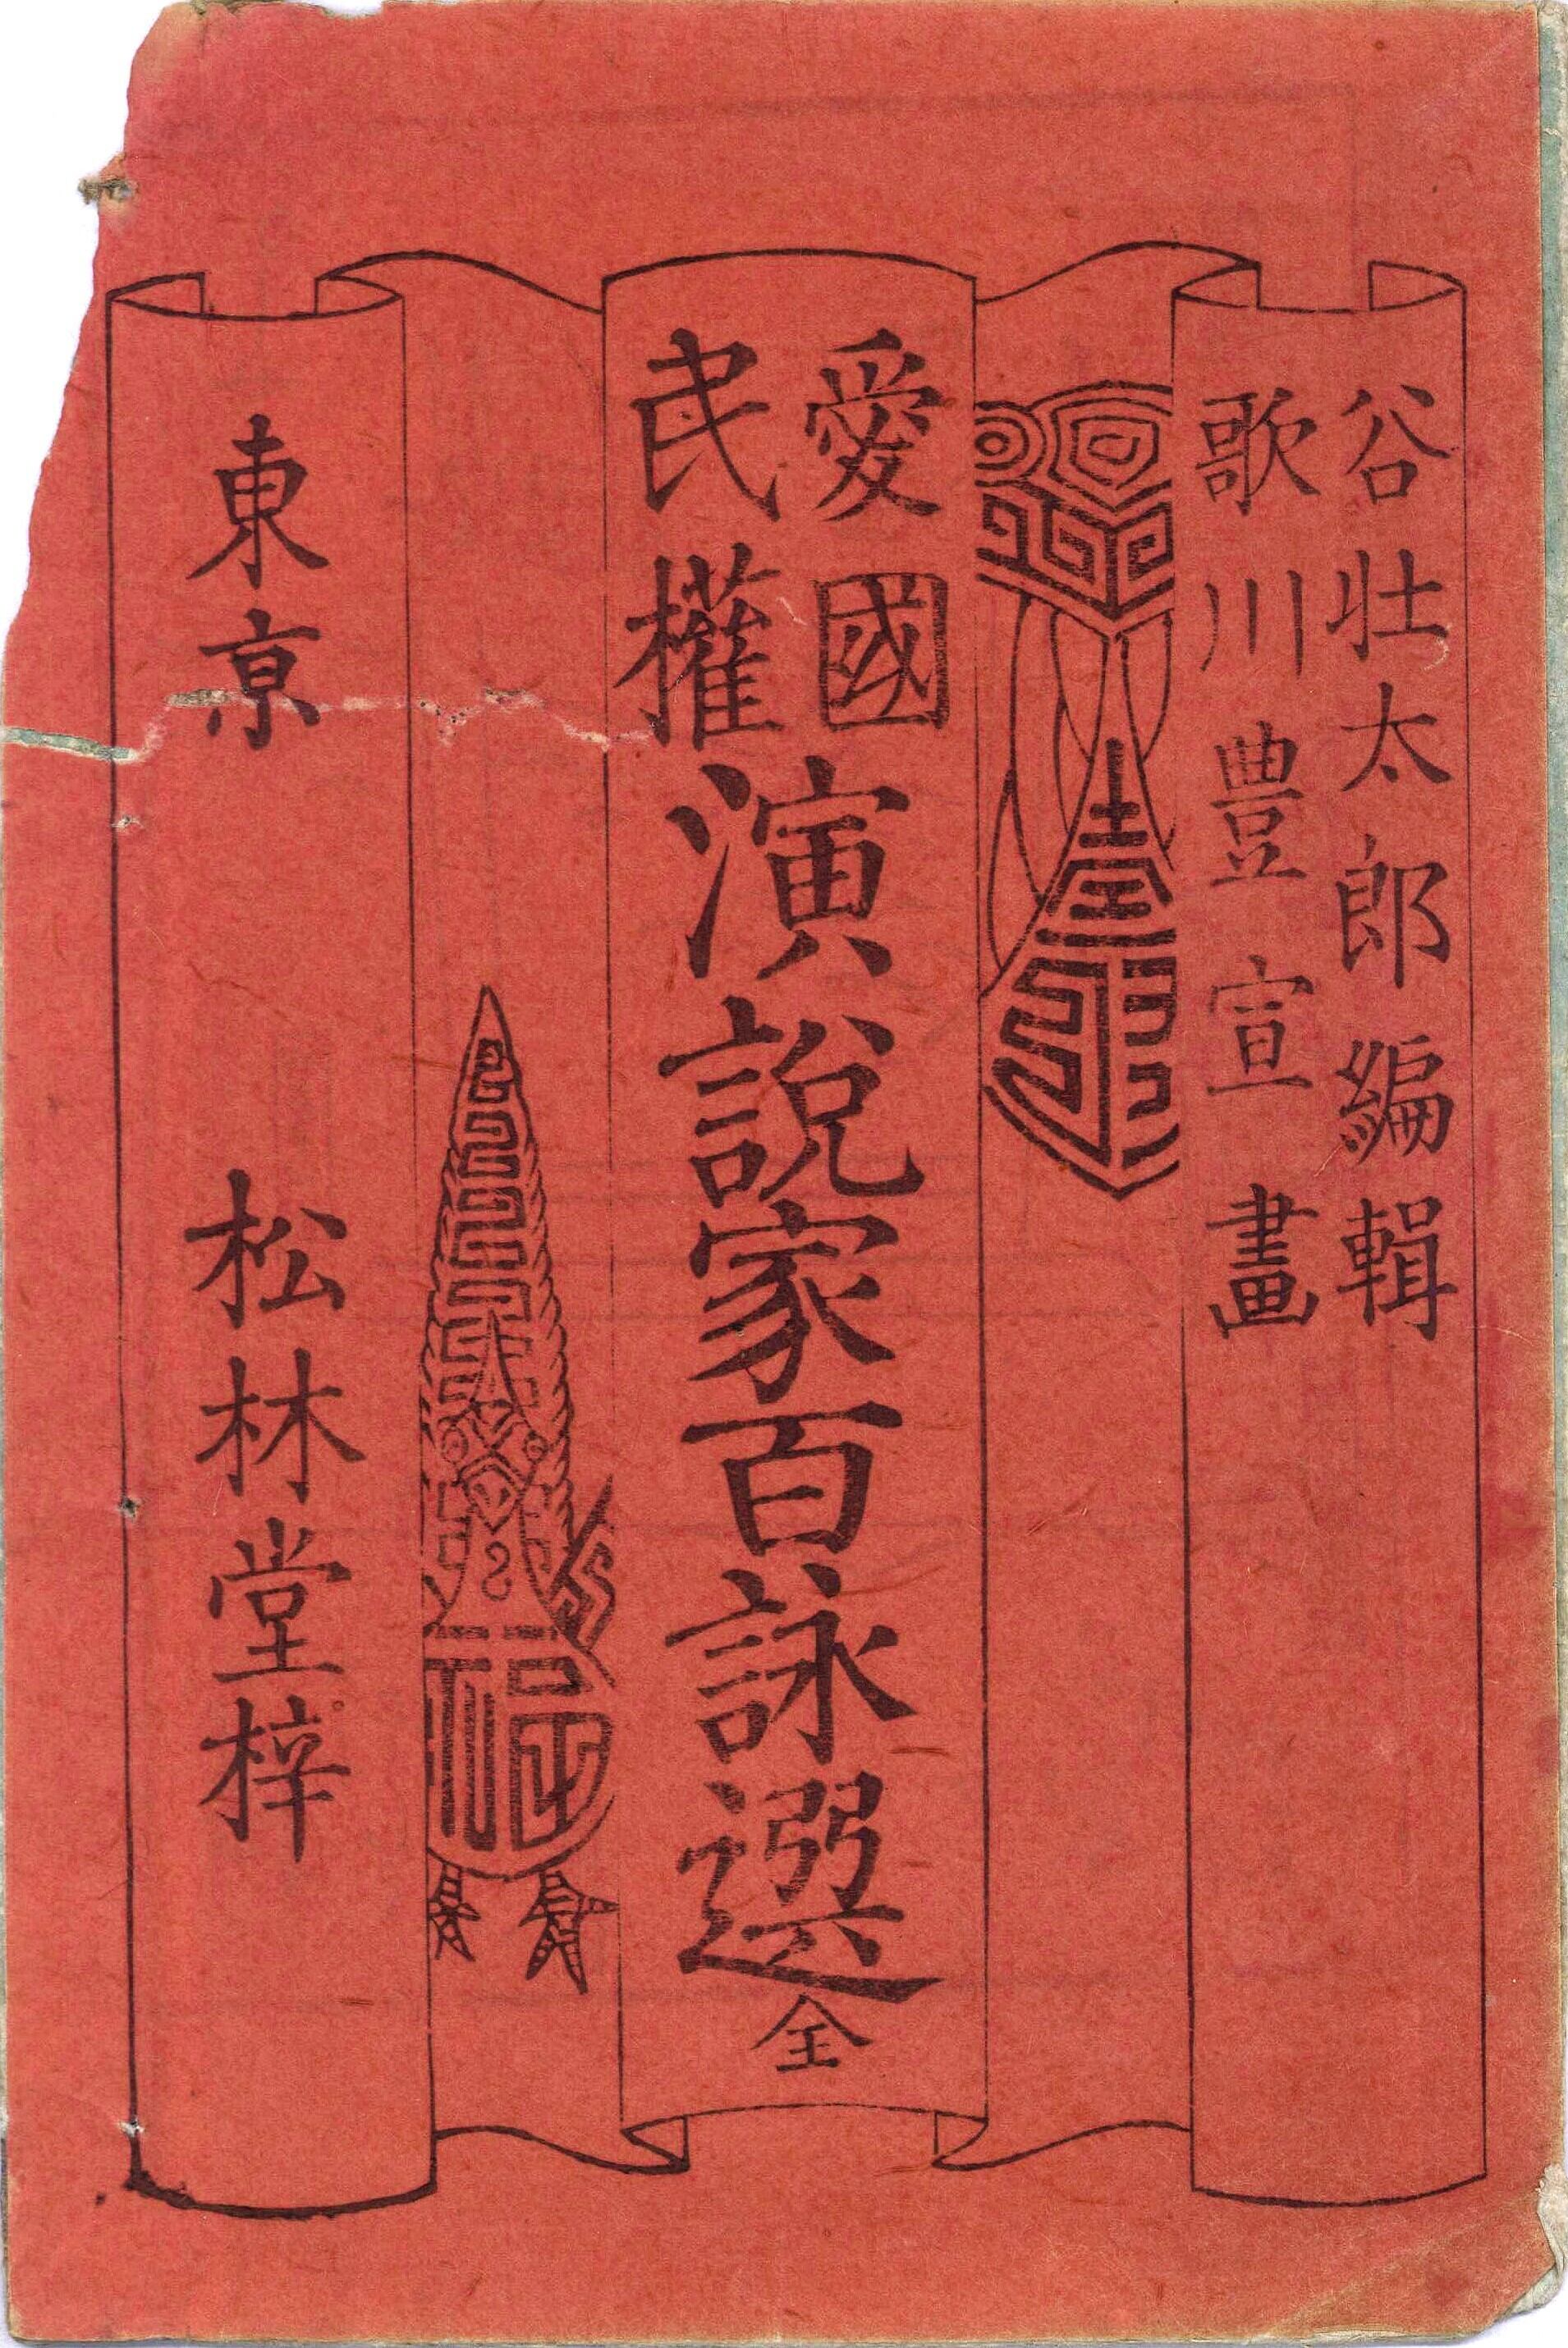 谷壮太郎編輯
歌川豊宣畫
愛國
民權
演說家百詠選全
東京 松林堂梓